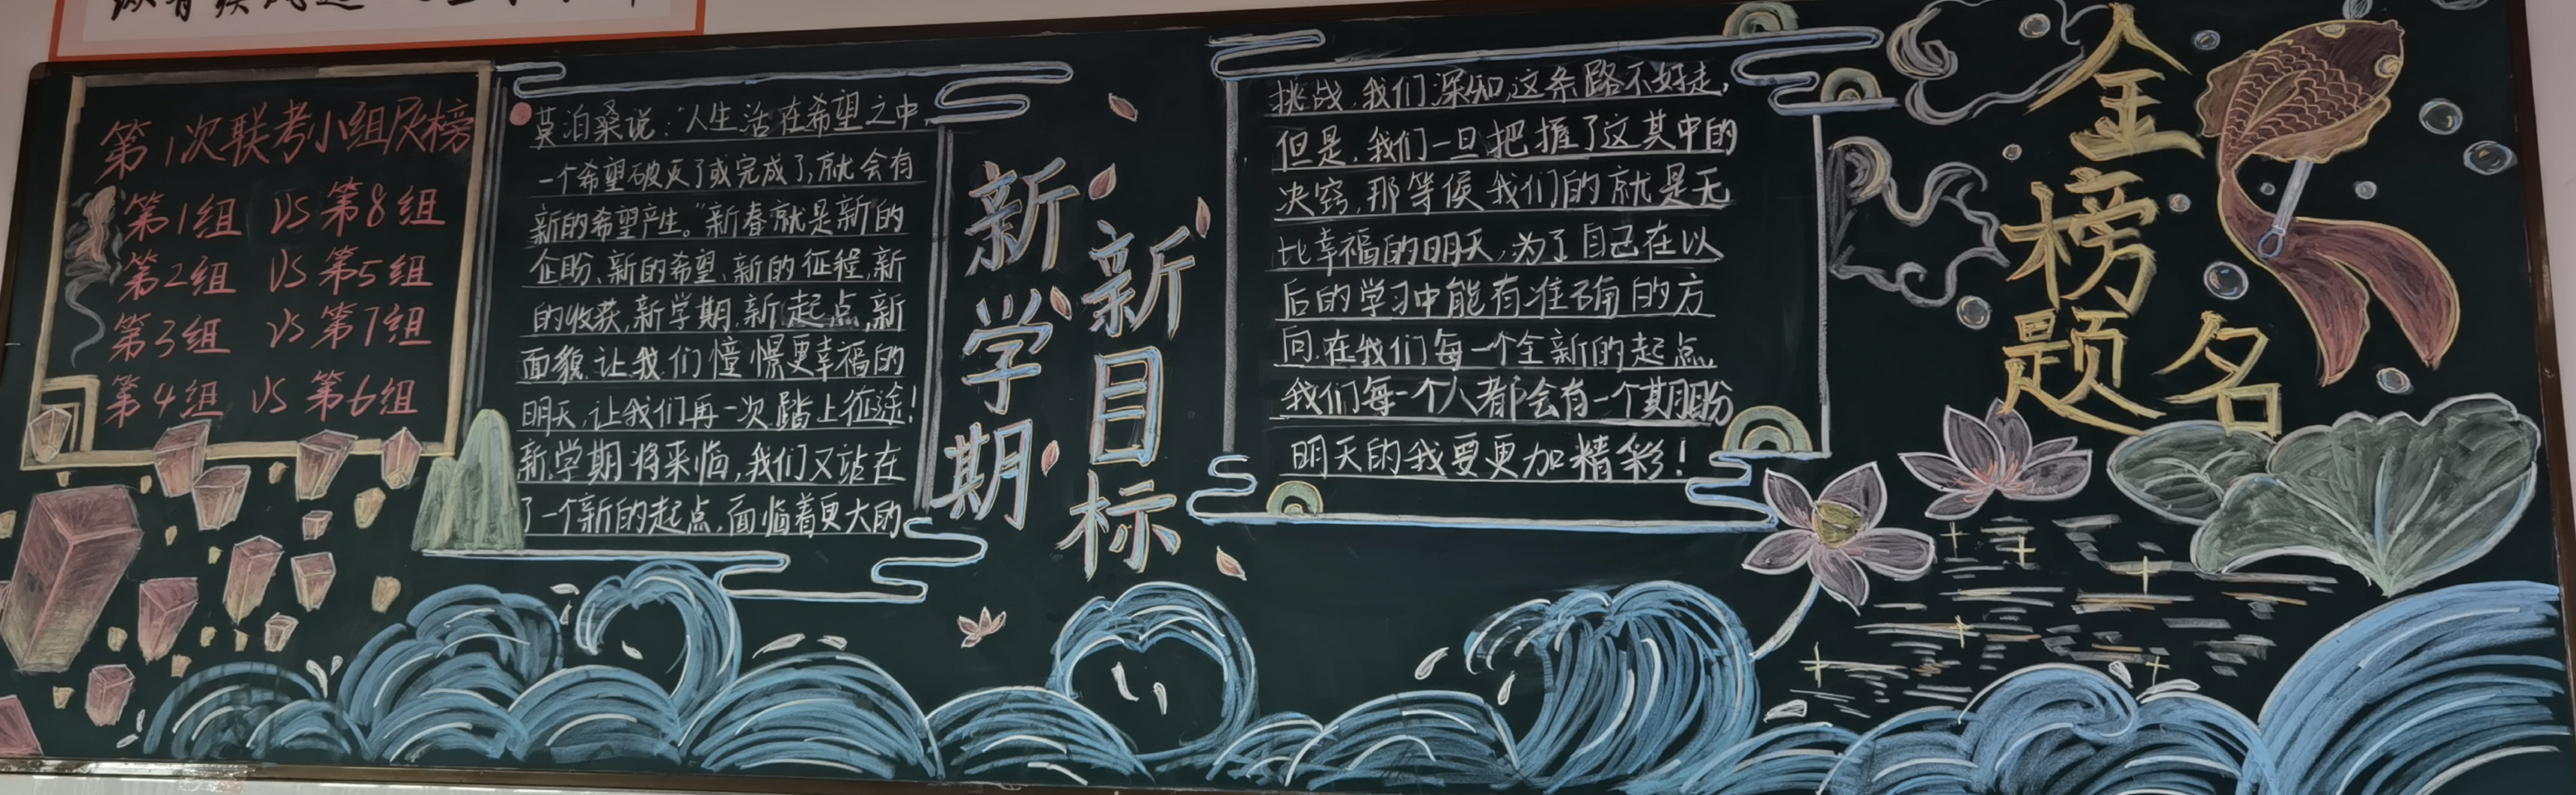 第1次联考小组灰榜
第1组 VS 第8组
第2组 VS 第5组
第3组 VS 第7组
第4组 VS 第6组
莫泊桑说:“人生活在希望之中
一个希望破灭了或完成了,就会有
新的希望产生。”新春就是新的
企盼、新的希望、新的征程,新
的收获,新学期,新起点,新
面貌让我们憧憬更幸福的
明天,让我们再一次踏上征途!
新学期将来临,我们又站在
了一个新的起点,面临着更大的
新学期
新目标
挑战,我们深知,这条路不好走,
但是,我们一旦把握了这其中的
决窍,那等候我们的就是无
比幸福的明天,为了自己在以
后的学习中能有准确的方
向,在我们每一个全新的起点,
我们每一个人都会有一个期盼
明天的我要更加精彩!
金榜题名